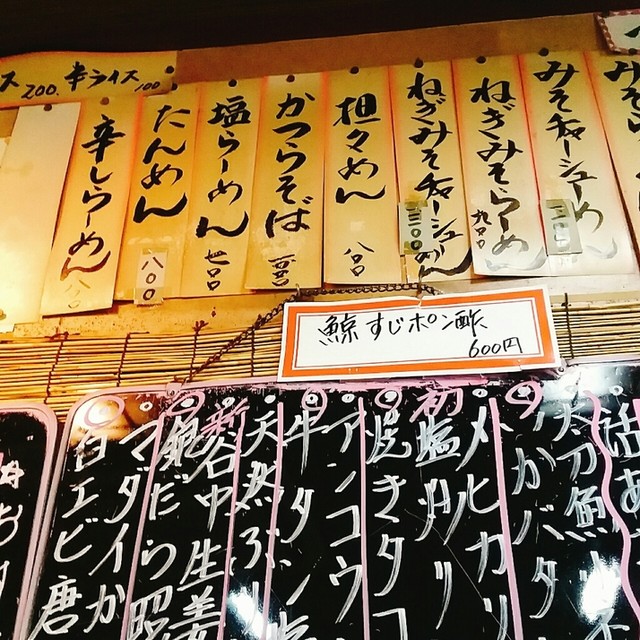 半ライス 100
ス 200.
みそチャーシューめん
ねぎみそらーめん 九〇〇
ねぎみそチャーシューめん 一三〇〇
担々めん 八〇〇
かつらそば
塩らーめん 七〇〇
たんめん 八〇〇
辛しらーめん 八〇
鯨すじポン酢
600円
太刀魚
いかバタ
メヒカリ
初塩
焼きタコ
アンコウ
牛タン塩
天然ぶり
新谷中生姜
銀だら照
マダイか
白エビ唐